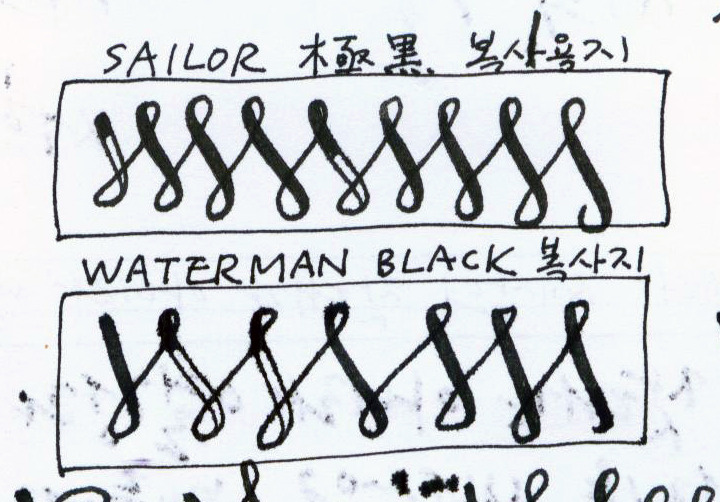 SAILOR 極黒 복사용지
WATERMAN BLACK 복사지